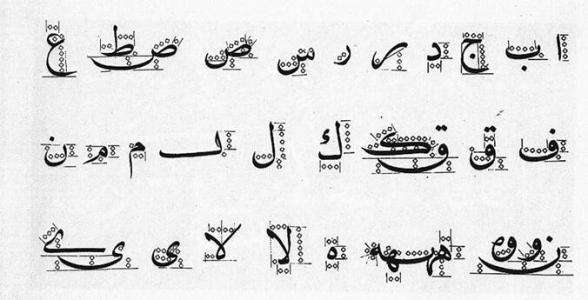 ا ب ج د ر ر س ص ص ط ع
ف ق ق ك ك ل م م ن
ن و و ه ههه ه لا لا ى ى ے